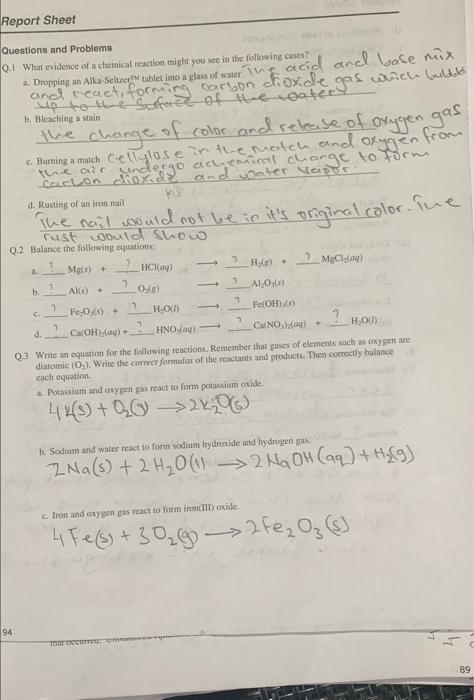 Report Sheet
Questions and Problems
Q.1 What evidence of a chemical reaction might you see in the following cases?
a. Dropping an Alka-Seltzer™ tablet into a glass of water The acid and base mix
and react, forming carbon dioxide gas which bubbles
up to the surface of the water
b. Bleaching a stain
the change of color and release of oxygen gas
c. Burning a match Cellylose in the match and oxygen from
the air undergo achemical change to form
carbon dioxide and water vapor.
d. Rusting of an iron nail
The nail would not be in it's original color. The
rust would show
Q.2 Balance the following equations:
a. ? Mg(s) + ? HCl(aq) → ? H₂(g) + ? MgCl₂(aq)
b. ? Al(s) + ? O₂(g) → ? Al₂O₃(s)
c. ? Fe₂O₃(s) + ? H₂O(l) → ? Fe(OH)₃(s)
d. ? Ca(OH)₂(aq) + ? HNO₃(aq) → ? Ca(NO₃)₂(aq) + ? H₂O(l)
Q.3 Write an equation for the following reactions. Remember that gases of elements such as oxygen are
diatomic (O₂). Write the correct formulas of the reactants and products. Then correctly balance
each equation.
a. Potassium and oxygen gas react to form potassium oxide.
4K(s) + O₂(g) → 2K₂O(s)
b. Sodium and water react to form sodium hydroxide and hydrogen gas.
2Na(s) + 2H₂O(l) → 2NaOH(aq) + H₂(g)
c. Iron and oxygen gas react to form iron(III) oxide.
4Fe(s) + 3O₂(g) → 2Fe₂O₃(s)
94
that occurred.
89